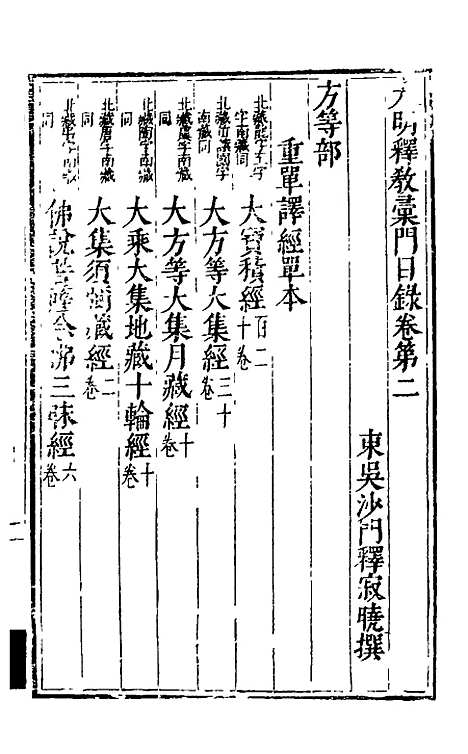 大明釋教彙門目錄卷第二
東吳沙門釋寂曉撰
方等部
重單譯經單本
大寶積經百二十卷
北藏 字南藏同
大方等大集經三十卷
北藏 南藏同
大方等大集月藏經十卷
北藏虞字南藏同
大乘大集地藏十輪經十卷
北藏陶字南藏同
大集須彌藏經二卷
北藏唐字南藏同
佛說菩薩念佛三昧經六卷
北藏 字南藏同